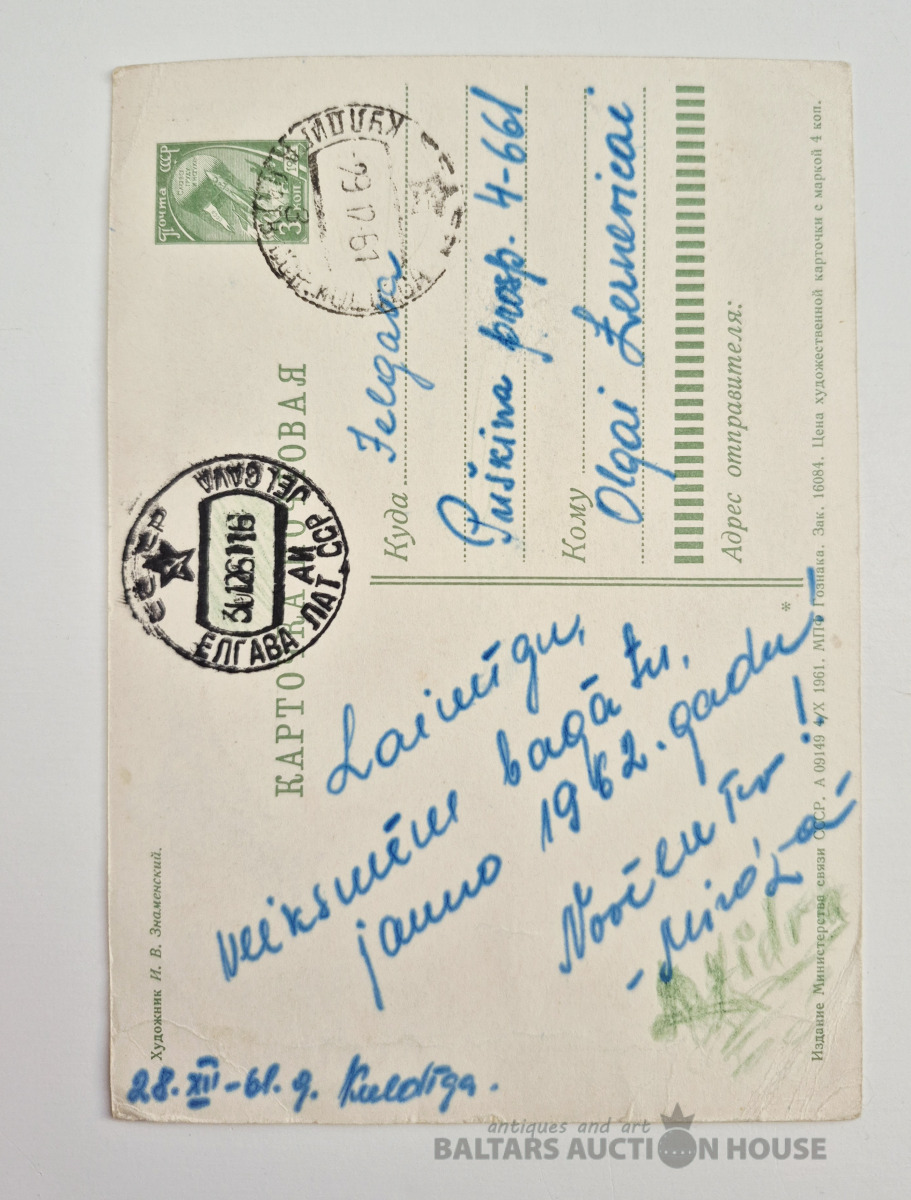 Художник И. В. Знаменский.
28. XII – 61. g. Kuldīga.
КАРТОЧКА ПОЧТОВАЯ
Laimīgu,
veiksmēm bagātu,
jauno 1962. gadu!
Novēl
Почта СССР
3 КОП
1961
КУЛДИГА
29 12 61
СССР
ЕЛГАВА ЛАТ. ССР JELGAVA
Куда Jelgava
Puškina prosp. 4-661
Кому
Olgai Zernevicai
Адрес отправителя:
*
Издание Министерства связи СССР. А 09149 4/X 1961. МПФ Гознака. Зак. 16084. Цена художественной карточки с маркой 4 коп.
antiques and art
BALTARS AUCTION HOUSE